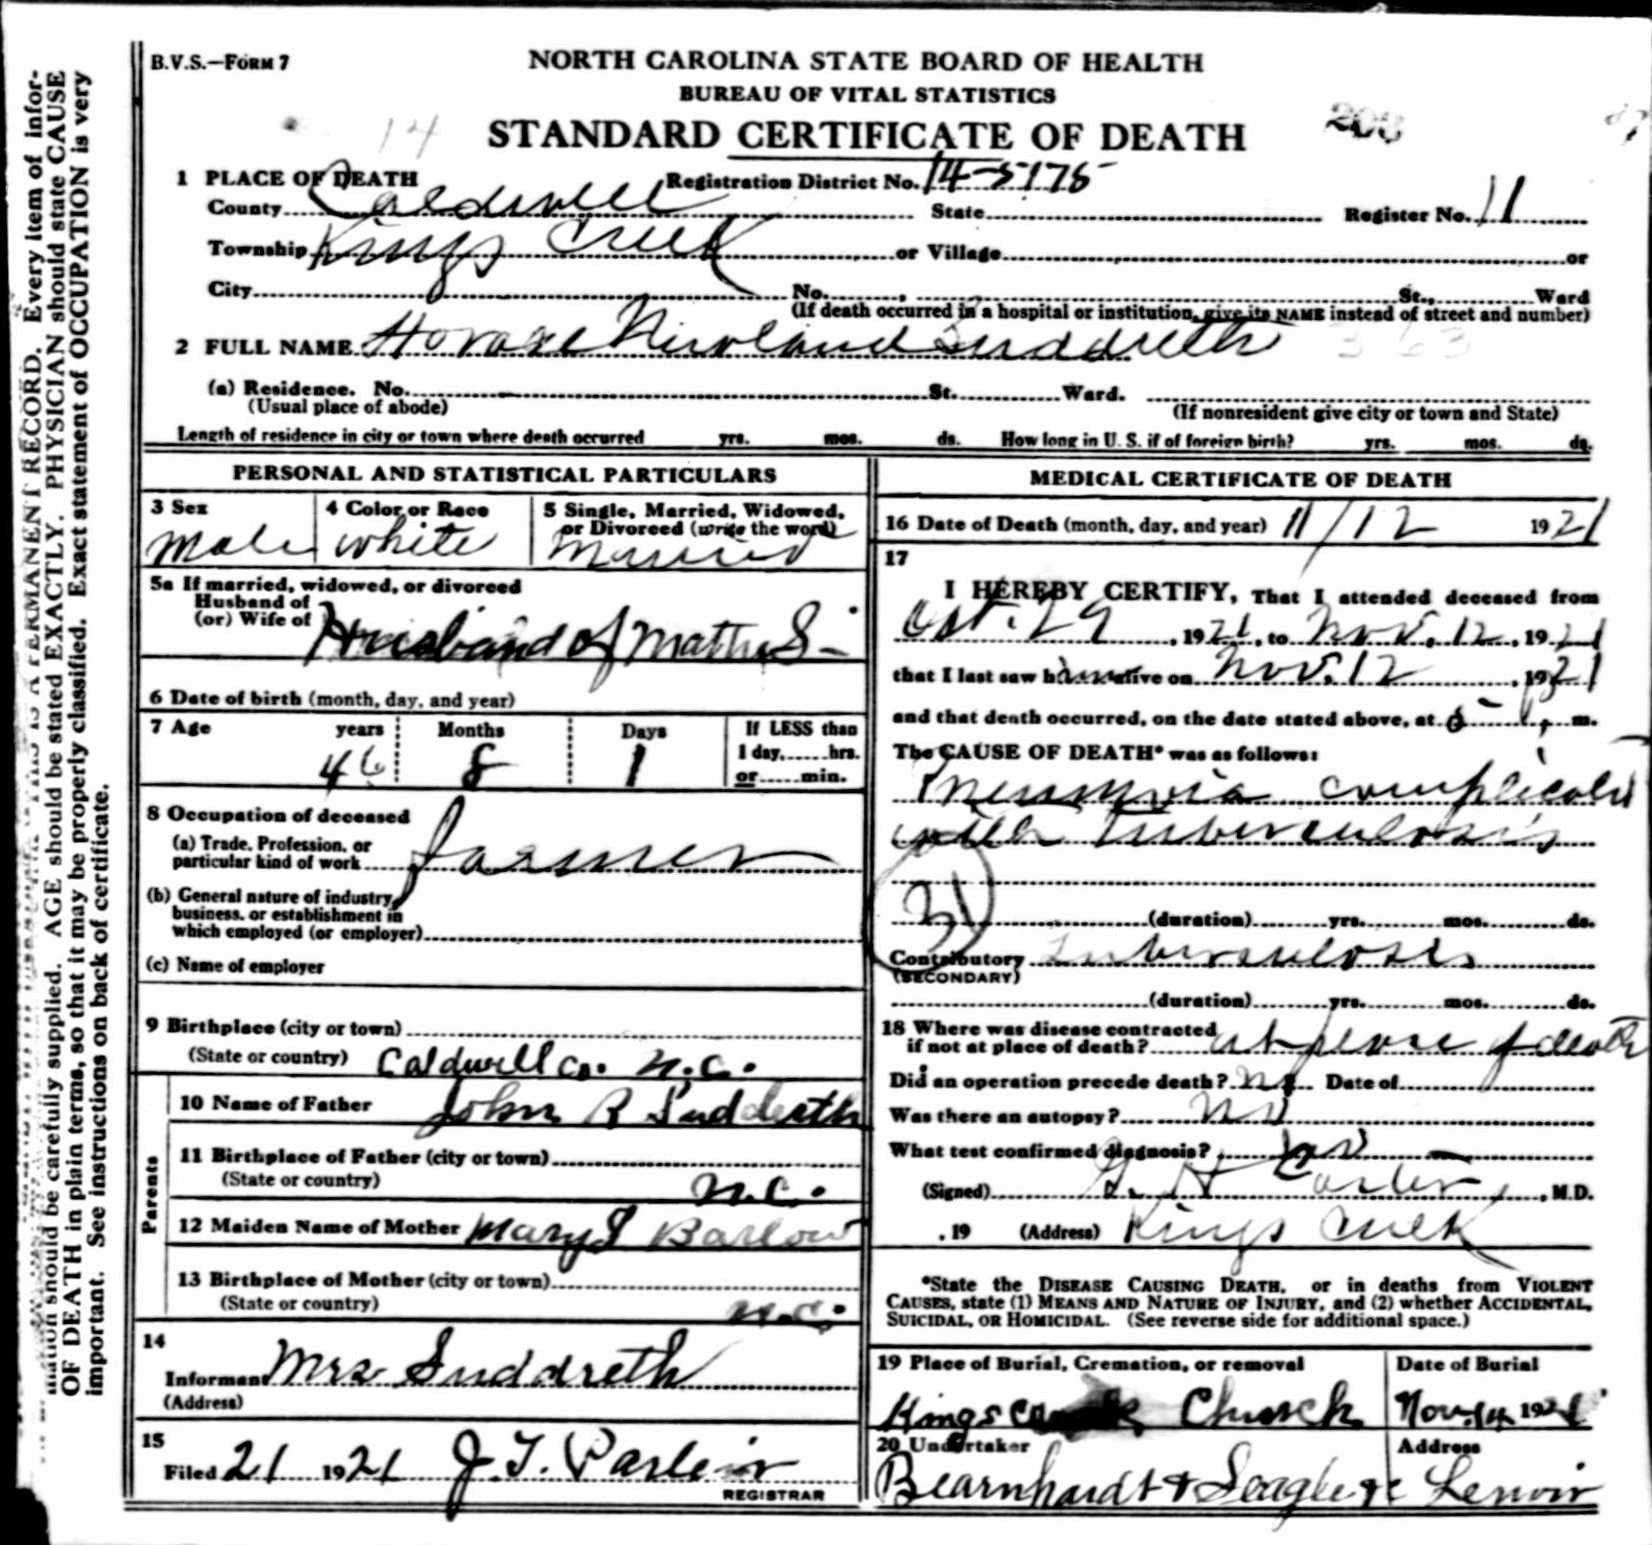 B.V.S.—FORM 7
NORTH CAROLINA STATE BOARD OF HEALTH
BUREAU OF VITAL STATISTICS
STANDARD CERTIFICATE OF DEATH
14
203
1 PLACE OF DEATH
Registration District No. 14-5175
County Caldwell State Register No. 11
Township Kings Creek or Village or
City No. St., Ward
(If death occurred in a hospital or institution, give its NAME instead of street and number)
2 FULL NAME Horace Suddreth
363
(a) Residence. No. St. Ward.
(Usual place of abode) (If nonresident give city or town and State)
Length of residence in city or town where death occurred yrs. mos. ds. How long in U. S. if of foreign birth? yrs. mos. ds.
PERSONAL AND STATISTICAL PARTICULARS
3 Sex
Male
4 Color or Race
White
5 Single, Married, Widowed, or Divorced (write the word)
Married
5a If married, widowed, or divorced
Husband of
(or) Wife of
Husband of Mattie S-
6 Date of birth (month, day, and year)
7 Age years Months Days If LESS than
1 day, hrs.
46 8 1 or min.
8 Occupation of deceased
(a) Trade, Profession, or
particular kind of work farmer
(b) General nature of industry,
business, or establishment in
which employed (or employer)
(c) Name of employer
9 Birthplace (city or town)
(State or country) Caldwell Co. N.C.
Parents
10 Name of Father John R Suddreth
11 Birthplace of Father (city or town)
(State or country) N.C.
12 Maiden Name of Mother Mary Barlow
13 Birthplace of Mother (city or town)
(State or country) N.C.
14
Informant Mrs Suddreth
(Address)
15
Filed 21 1921 J. T.
REGISTRAR
MEDICAL CERTIFICATE OF DEATH
16 Date of Death (month, day, and year) 11/12 1921
17
I HEREBY CERTIFY, That I attended deceased from
Oct. 29, 1921, to Nov. 12, 1921
that I last saw him alive on Nov. 12, 1921
and that death occurred, on the date stated above, at m.
The CAUSE OF DEATH* was as follows:
Pneumonia complicated
with Tuberculosis
31
(duration) yrs. mos. ds.
Contributory Tuberculosis
(SECONDARY)
(duration) yrs. mos. ds.
18 Where was disease contracted
if not at place of death? at place of death
Did an operation precede death? no Date of
Was there an autopsy? no
What test confirmed diagnosis? no
(Signed) , M.D.
, 19 (Address) Kings Creek
*State the DISEASE CAUSING DEATH, or in deaths from VIOLENT
CAUSES, state (1) MEANS AND NATURE OF INJURY, and (2) whether ACCIDENTAL,
SUICIDAL, OR HOMICIDAL. (See reverse side for additional space.)
19 Place of Burial, Cremation, or removal
Kings Creek Church
Date of Burial
Nov. 14 1921
20 Undertaker
Bearnhardt & Seagle
Address
Lenoir
mation should be carefully supplied. AGE should be stated EXACTLY. PHYSICIAN should state CAUSE
OF DEATH in plain terms, so that it may be properly classified. Exact statement of OCCUPATION is very
important. See instructions on back of certificate.
THIS IS A PERMANENT RECORD. Every item of infor-